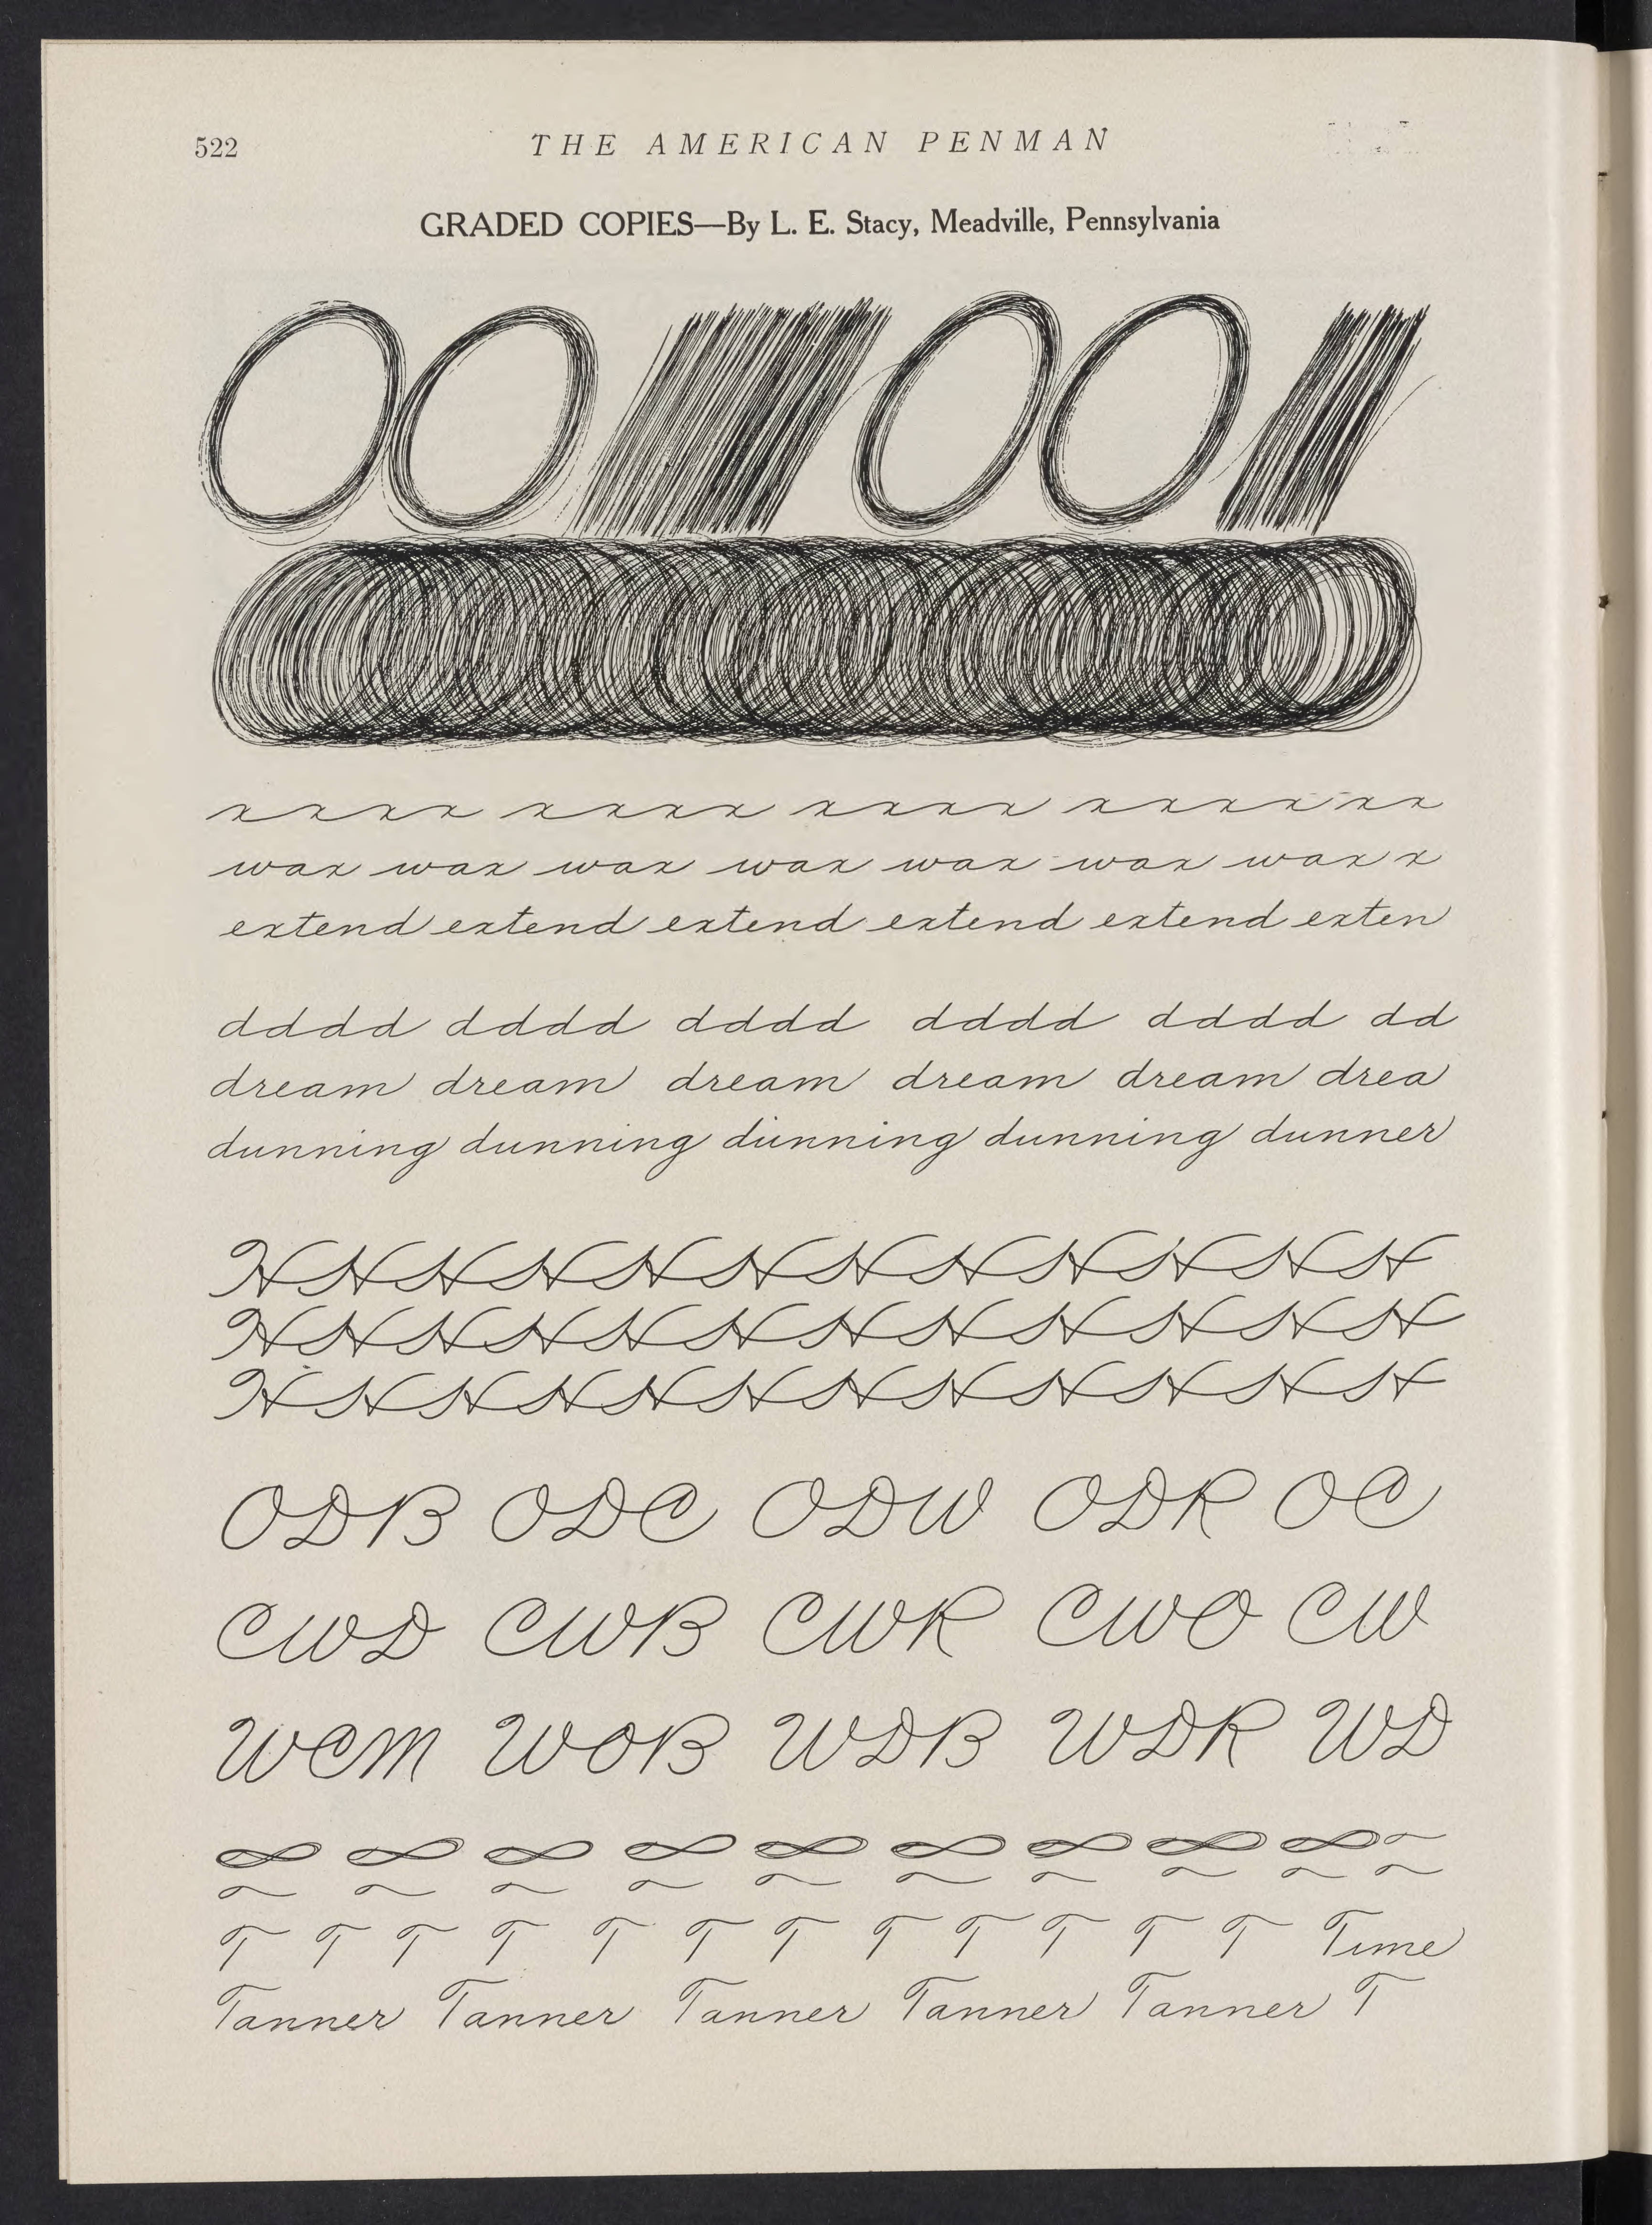 522
THE AMERICAN PENMAN
GRADED COPIES—By L. E. Stacy, Meadville, Pennsylvania
x x x x x x x x x x x x x x x x x x
wax wax wax wax wax wax wax x
extend extend extend extend extend exten
dddd dddd dddd dddd dddd dd
dream dream dream dream dream drea
dunning dunning dunning dunning dunner
ODB ODC ODW ODR OC
CWD CWB CWR CWO CW
WCM WOB WDB WDR WD
T T T T T T T T T T T T Time
Tanner Tanner Tanner Tanner Tanner T